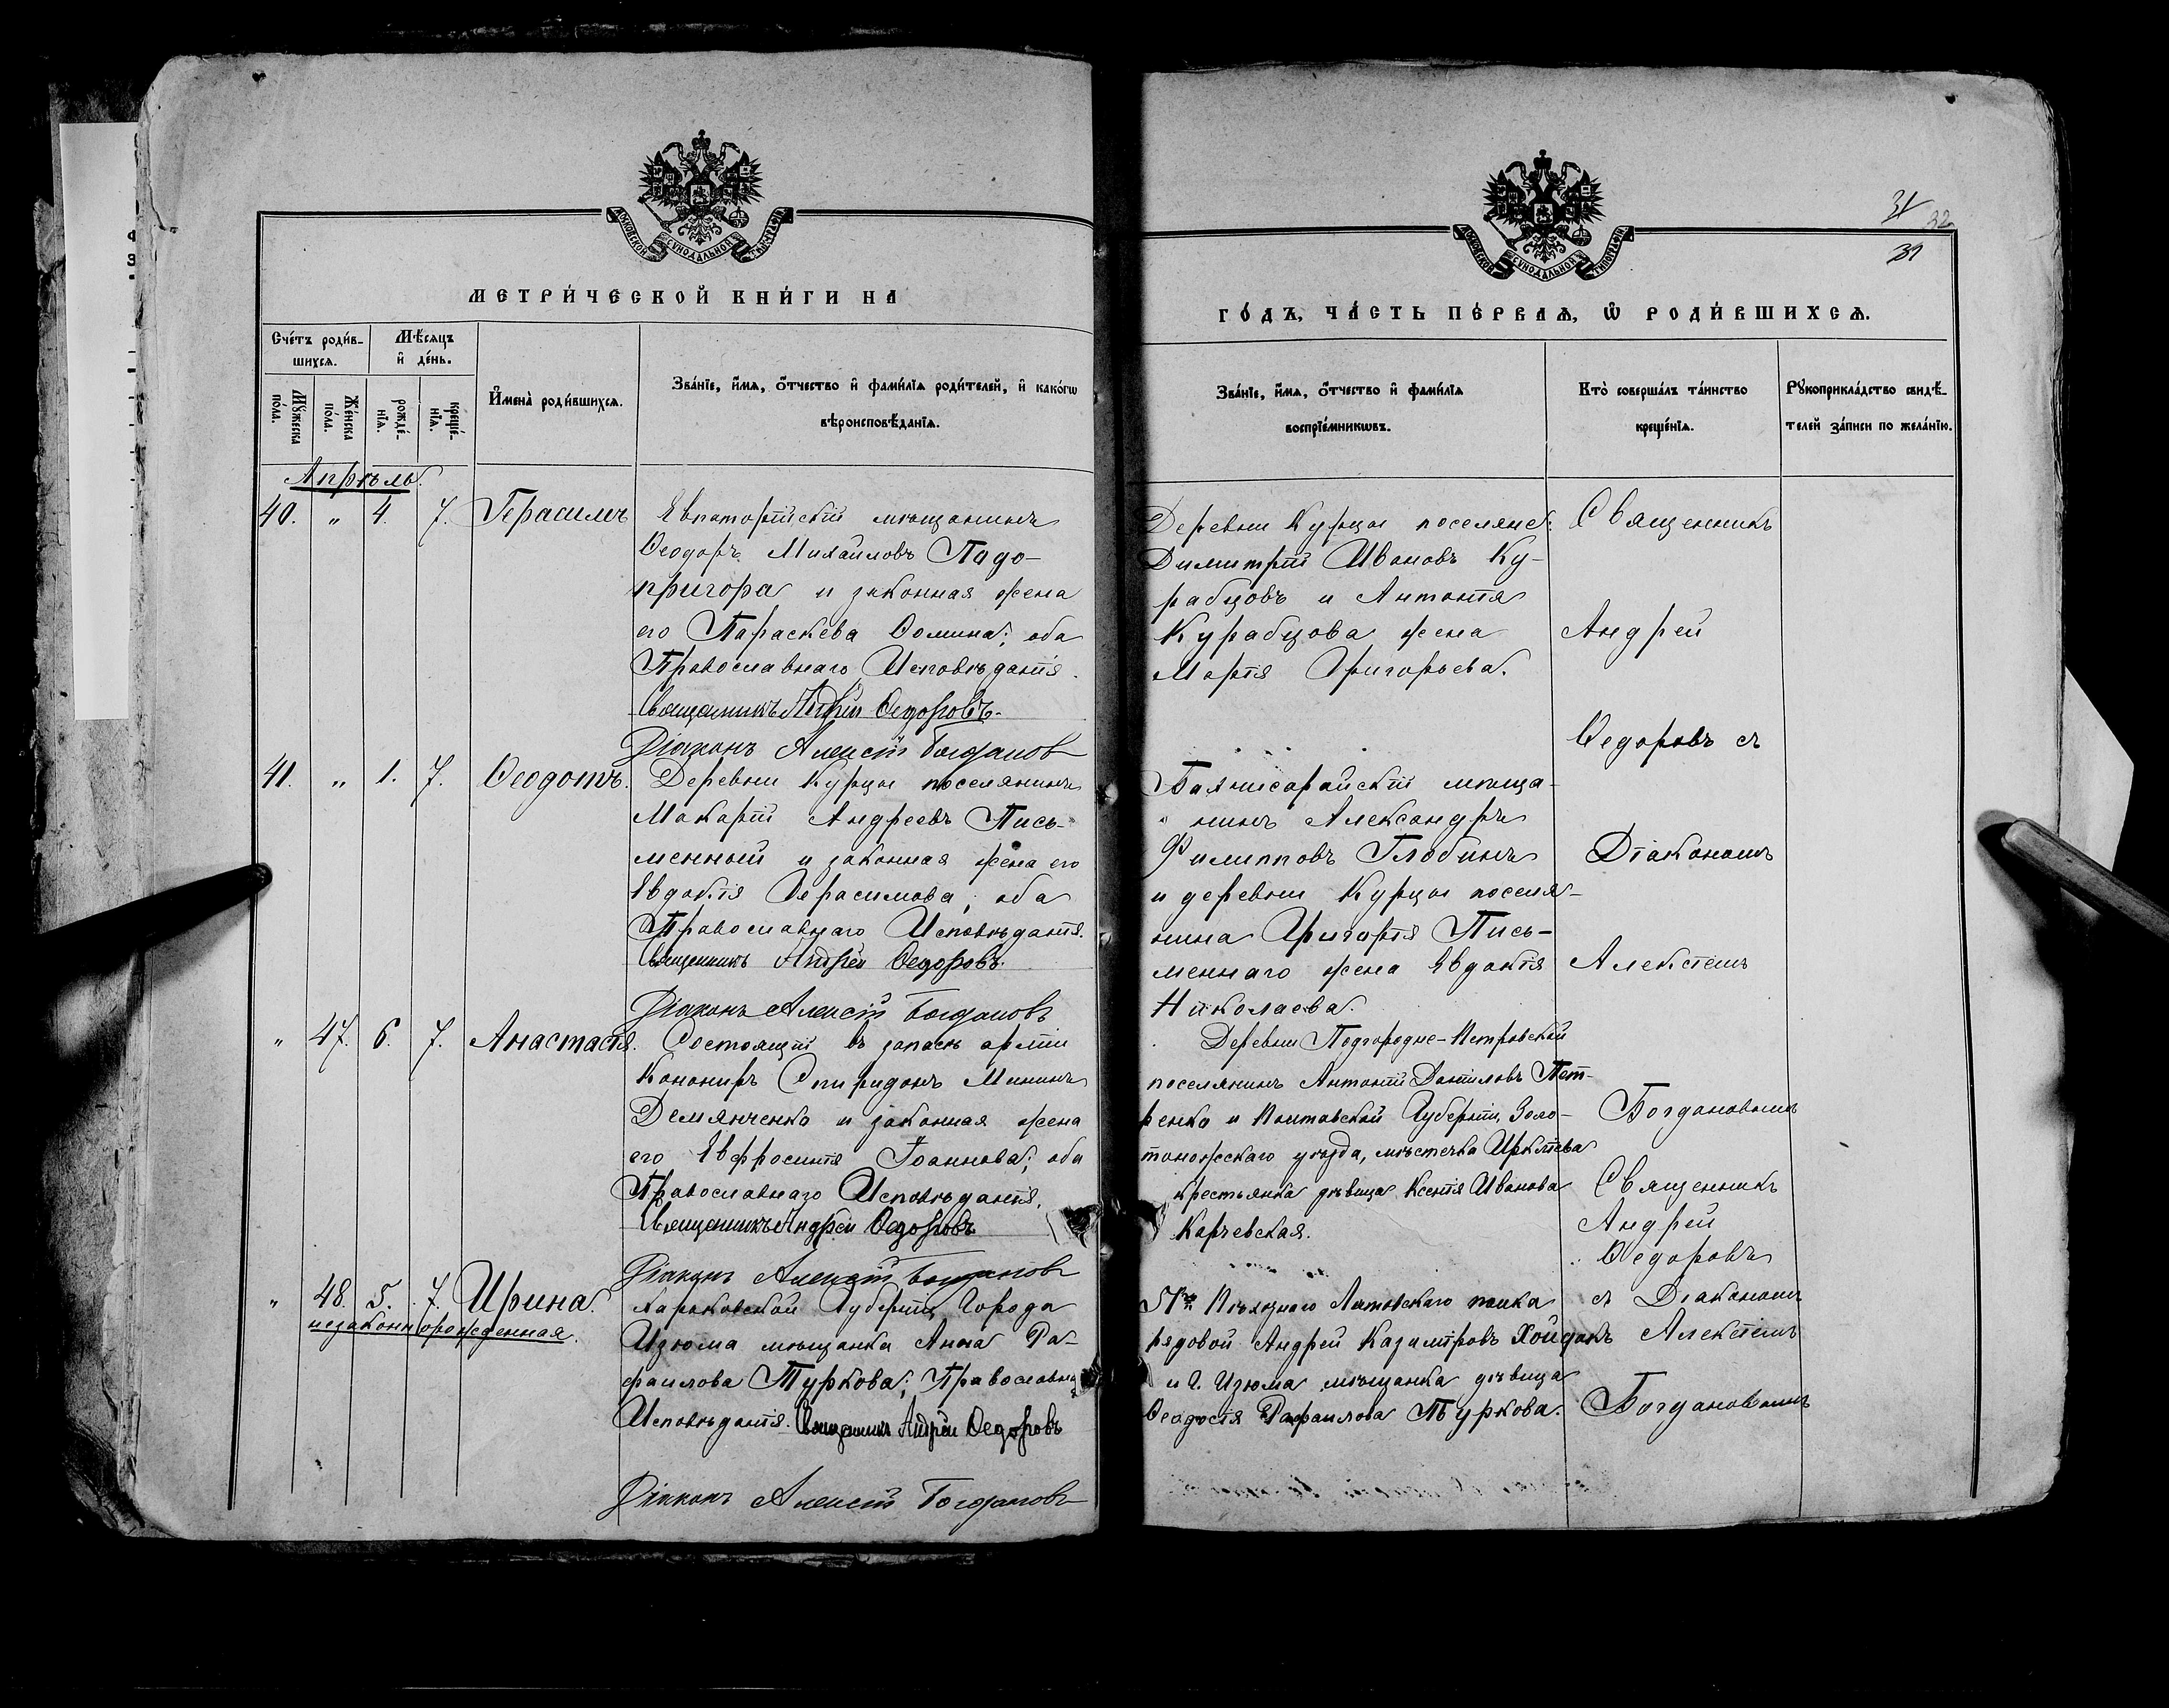 МОСКОВСКОЙ СѴНОДАЛЬНОЙ ТИПОГРАФІИ
МЕТРИ́ЧЕСКОЙ КНИ́ГИ НА
Сче́тъ роди́в-
шихсѧ.
Мѣ́сѧцъ
и҆ де́нь.
Мꙋ́жеска по́ла.
Же́нска по́ла.
рожде́-нїѧ.
креще́-нїѧ.
И҆мена̀ роди́вшихсѧ.
Зва́нїе, и҆́мѧ, ѻ҆́тчество и҆ фами́лїѧ роди́телей, и҆ како́гѡ
вѣроисповѣ́данїѧ.
Апрѣль.
40. " 4. 7. Герасимъ
Евпаторійскій мѣщанинъ
Ѳеодоръ Михайловъ Падо-
пригора и законная жена
его Параскева Ѳомина; оба
Православнаго Исповѣданія.
Священникъ Андрей Ѳедоровъ.
Діаконъ Алексій Богдановъ
41. " 1. 7. Ѳеодотъ.
Деревни Курцы поселянинъ
Макарій Андреевъ Пись-
менный и законная жена его
Евдокія Герасимова; оба
Православнаго Исповѣданія.
Священникъ Андрей Ѳедоровъ.
Діаконъ Алексій Богдановъ
" 47. 6. 7. Анастасія.
Состоящій въ запасѣ арміи
Канониръ Спиридонъ Мининъ
Демянченко и законная жена
его Евфросинія Іоаннова; оба
Православнаго Исповѣданія.
Священникъ Андрей Ѳедоровъ
Діаконъ Алексій Богдановъ
" 48. 5. 7. Ирина.
незаконнорожденная.
Харьковской Губерніи, Города
Изюма мѣщанка Анна Ра-
фаилова Туркова; Православна
Исповѣданія. Священникъ Андрей Ѳедоровъ
Діаконъ Алексій Богдановъ
31 32
31
МОСКОВСКОЙ СѴНОДАЛЬНОЙ ТИПОГРАФІИ
ГО́ДЪ, ЧА́СТЬ ПЕ́РВАѦ, Ѡ҆ РОДИ́ВШИХСѦ.
Зва́нїе, и҆́мѧ, ѻ҆́тчество и҆ фами́лїѧ
воспрїе́мникѡвъ.
Кто̀ соверша́лъ та́инство
креще́нїѧ.
Рꙋкоприкла́дство свидѣ́-
телей за́писи по жела́нїю.
Деревни Курцы поселяне:
Димитрій Ивановъ Ку-
рабцовъ и Антонія
Курабцова жена
Марія Григорьева.
Бахчисарайскій мѣща-
нинъ Александръ
Филипповъ Глобинъ
и деревни Курцы поселя-
нина Григорія Пись-
меннаго жена Евдокія
Николаева.
Деревни Подгородне-Петровской
поселянинъ Антоній Даніиловъ Пет-
ренко и Полтавской Губерніи, Золо-
тоножскаго уѣзда, мѣстечка Ирклѣева
крестьянка дѣвица Ксенія Иванова
Карчевская.
51го Пѣхотнаго Литовскаго полка
рядовой Андрей Казиміровъ Хойдакъ
и г. Изюма мѣщанка дѣвица
Ѳеодосія Рафаилова Туркова.
Священникъ
Андрей
Ѳедоровъ съ
Діакономъ
Алексіемъ
Богдановымъ
Священникъ
Андрей
Ѳедоровъ
съ Діакономъ
Алексіемъ
Богдановымъ